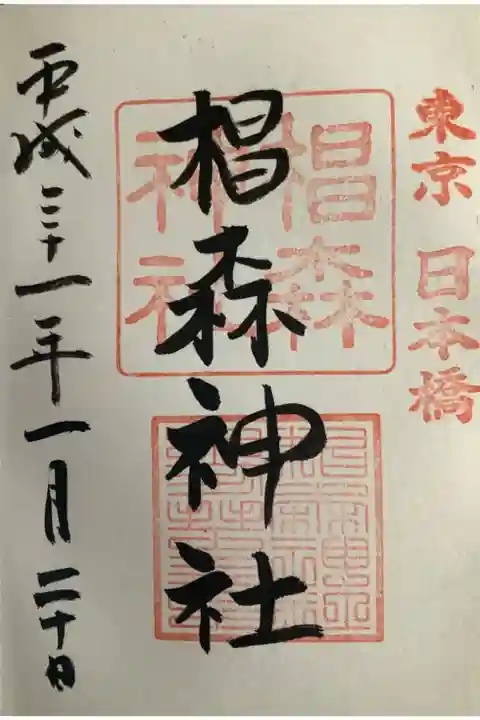 東京 日本橋
椙森
神社
椙森神社
平成三十一年一月二十日